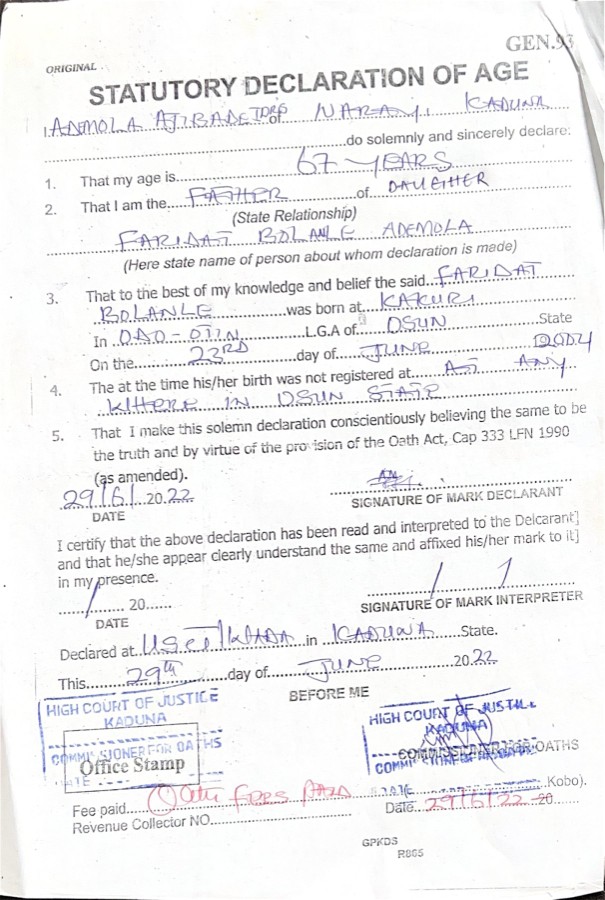 GEN.93
ORIGINAL
STATUTORY DECLARATION OF AGE
I, ADEMOLA AJIBADE IDRIS of NARAYI KADUNA
do solemnly and sincerely declare:
1. That my age is 67 YEARS
2. That I am the FATHER of DAUGHTER
(State Relationship)
FARIDAT BOLANLE ADEMOLA
(Here state name of person about whom declaration is made)
3. That to the best of my knowledge and belief the said FARIDAT
BOLANLE was born at KAKURI
In ODO-OTIN L.G.A of OSUN State
On the 23RD day of JUNE 2004
4. The at the time his/her birth was not registered at AT ANY
WHERE IN OSUN STATE
5. That I make this solemn declaration conscientiously believing the same to be
the truth and by virtue of the provision of the Oath Act, Cap 333 LFN 1990
(as amended).
29/6/ 20 22
DATE
SIGNATURE OF MARK DECLARANT
I certify that the above declaration has been read and interpreted to the Delcarant]
and that he/she appear clearly understand the same and affixed his/her mark to it]
in my presence.
/ 20
DATE
/ 1
SIGNATURE OF MARK INTERPRETER
Declared at in KADUNA State.
This 29th day of JUNE 20 22
BEFORE ME
HIGH COURT OF JUSTICE
KADUNA
COMMISSIONER FOR OATHS
Office Stamp
DATE
HIGH COURT OF JUSTICE
KADUNA
COMMISSIONER FOR OATHS
COMMISSIONER FOR OATHS
DATE
Fee paid Oath fees PAID Kobo).
Revenue Collector NO. Date 29/6/22 20
GPKDS
R865